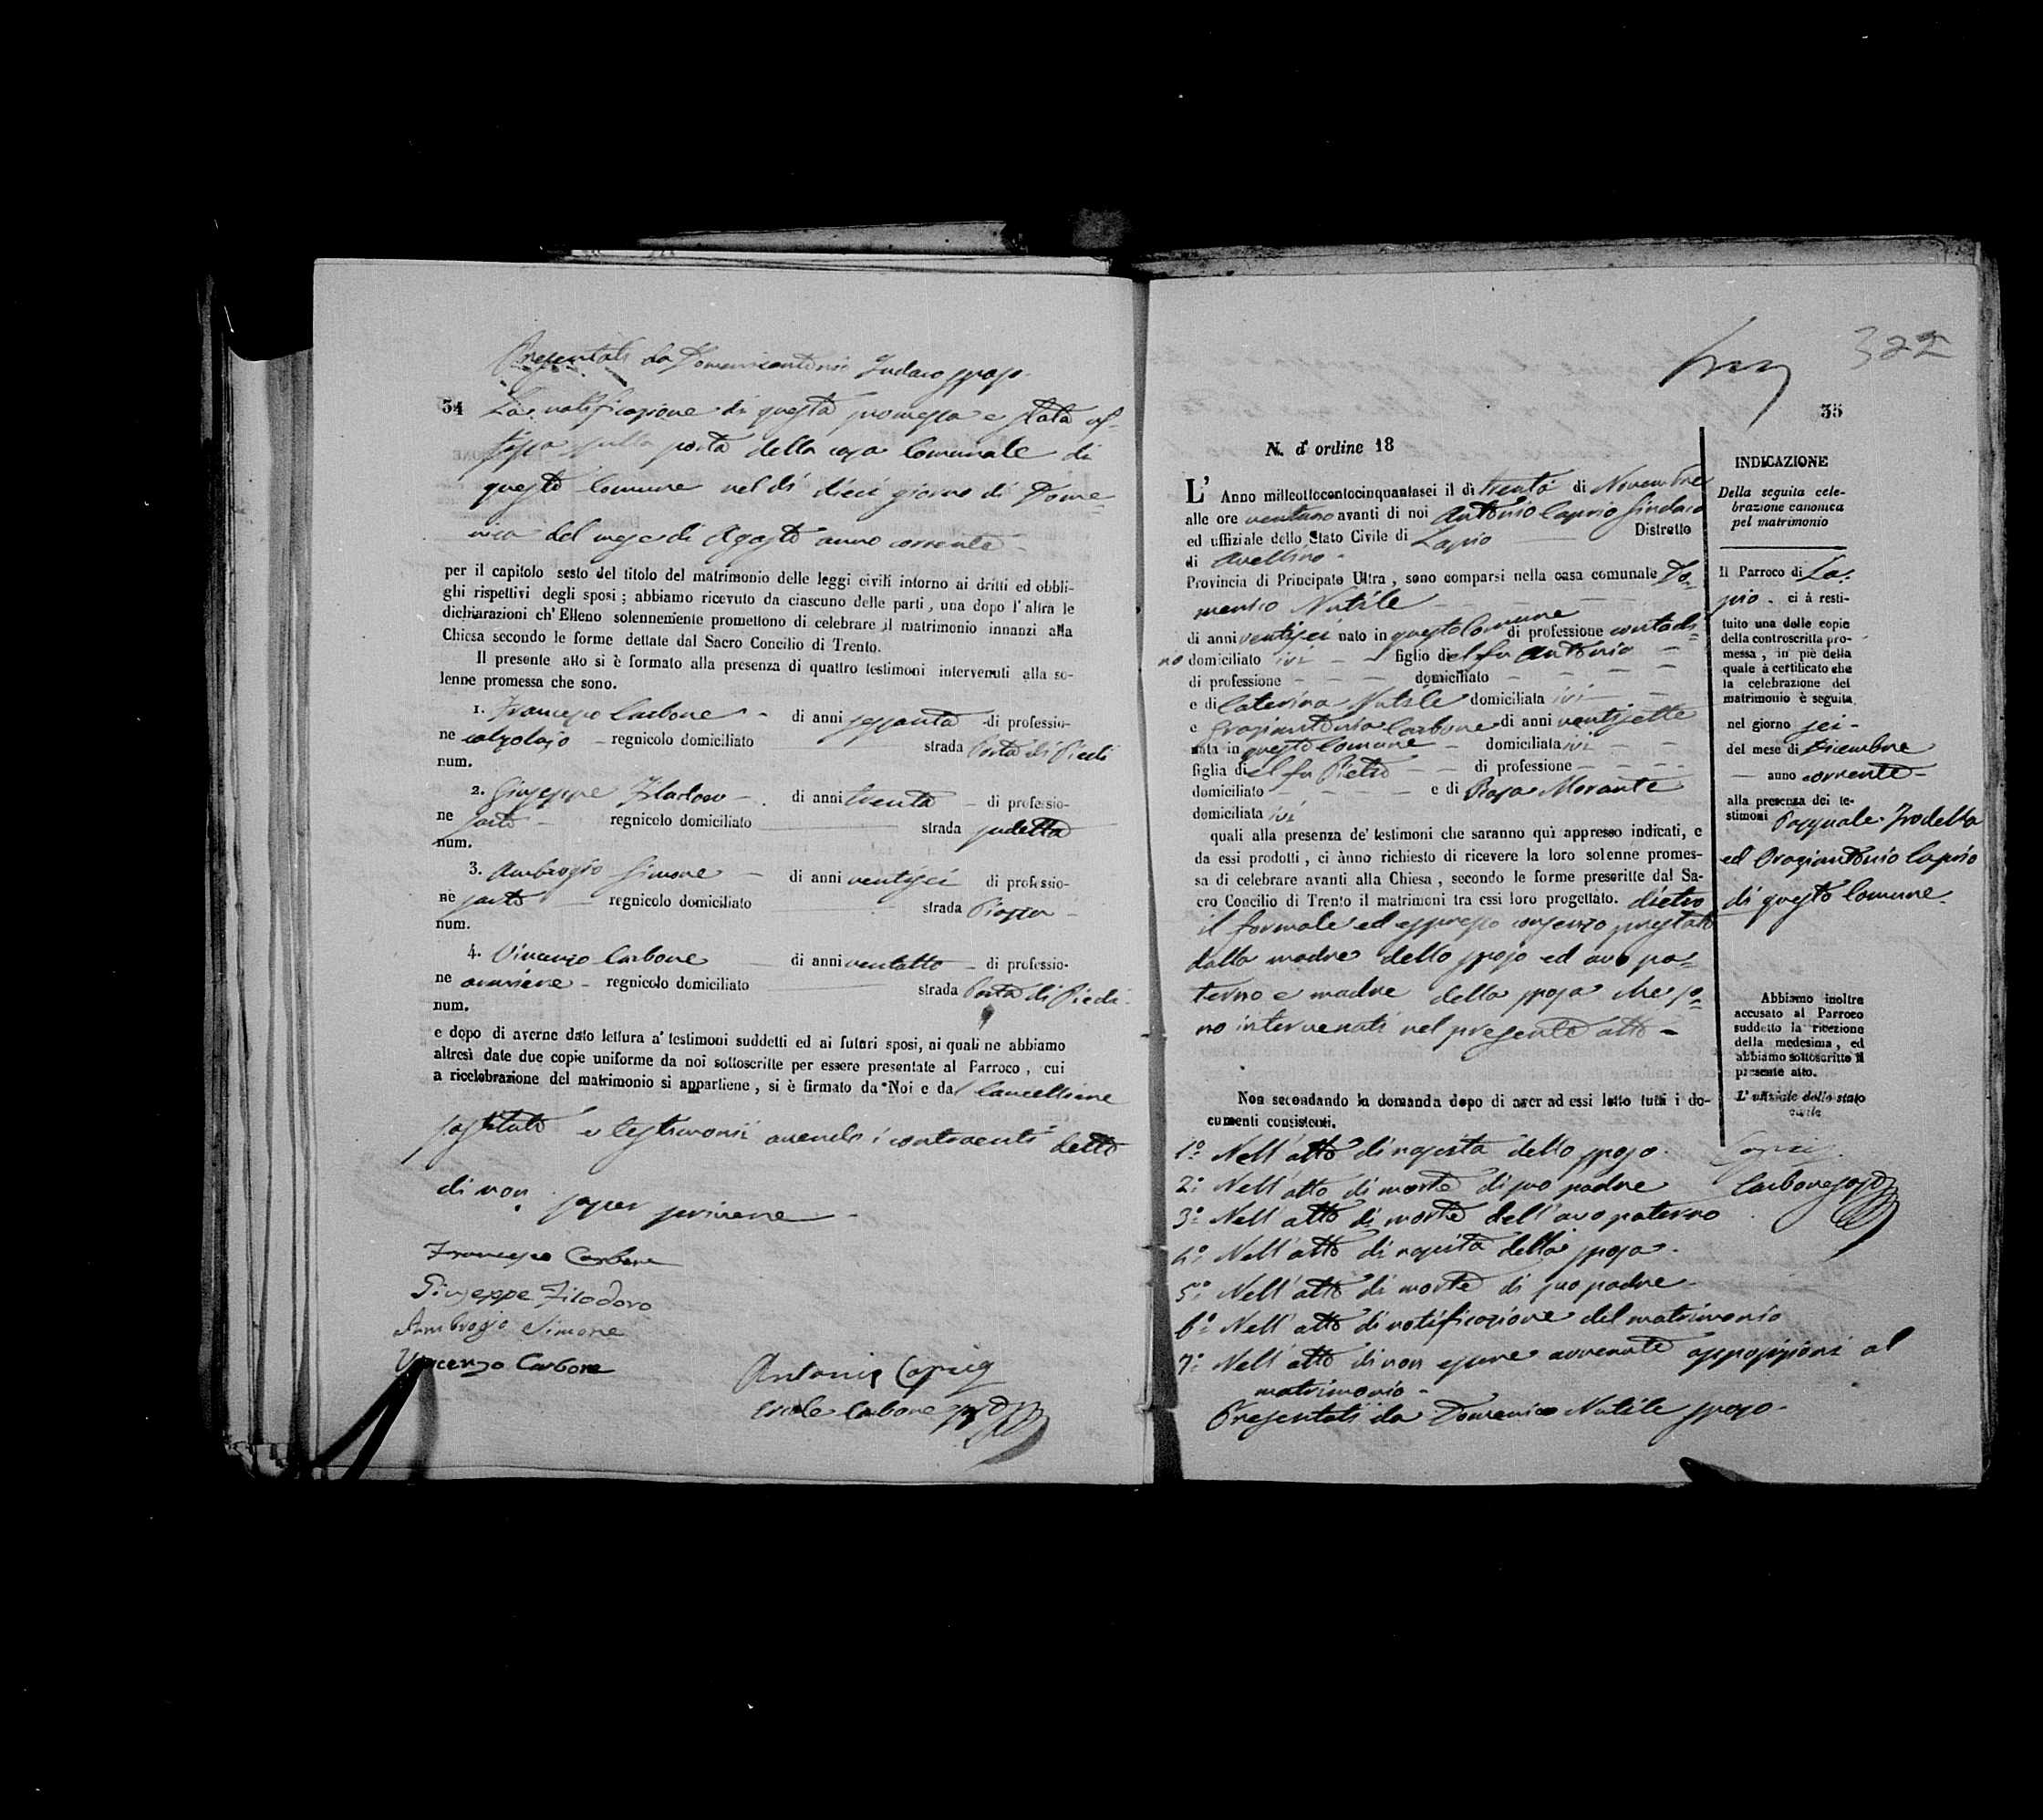 Presentati da Domenicantonio Iudaco sposo.
34 La notificazione di questa promessa è stata af-
fissa sulla porta della casa Comunale di
questo Comune nel dì dieci giorno di Dome-
nica del mese di Agosto anno corrente
per il capitolo sesto del titolo del matrimonio delle leggi civili intorno ai dritti ed obbli-
ghi rispettivi degli sposi; abbiamo ricevuto da ciascuno delle parti, una dopo l'altra le
dichiarazioni ch'Elleno solennemente promettono di celebrare il matrimonio innanzi alla
Chiesa secondo le forme dettate dal Sacro Concilio di Trento.
Il presente atto si è formato alla presenza di quattro testimoni intervenuti alla so-
lenne promessa che sono.
1. Francesco Carbone di anni sessanta di professio-
ne calzolajo regnicolo domiciliato strada Porta di Piedi
num.
2. Giuseppe di anni trenta di professio-
ne sarto regnicolo domiciliato strada
num.
3. Ambrogio Simone di anni ventisei di professio-
ne sarto regnicolo domiciliato strada Piazza
num.
4. Vincenzo Carbone di anni ventotto di professio-
ne regnicolo domiciliato strada Porta di Piedi
num.
e dopo di averne dato lettura a' testimoni suddetti ed ai futuri sposi, ai quali ne abbiamo
altresì date due copie uniforme da noi sottoscritte per essere presentate al Parroco, cui
a ricelebrazione del matrimonio si appartiene, si è firmato da Noi e dal Cancelliere
sostituto e testimonii avendo i contraenti detto
di non saper scrivere
Francesco Carbone
Giuseppe Filodoro
Ambrogio Simone
Vincenzo Carbone
Antonio Caprio
Ercole Carbone
322
35
N. d'ordine 18
L' Anno milleottocentocinquantasei il dì trenta di Novembre
alle ore ventuno avanti di noi Antonio Caprio Sindaco
ed uffiziale dello Stato Civile di Lapio Distretto
di Avellino
Provincia di Principato Ultra, sono comparsi nella casa comunale Do-
menico Natile
di anni ventisei nato in questo Comune di professione contadi-
no domiciliato ivi figlio del fu Antonio
di professione domiciliato
e di Caterina Natile domiciliata ivi
e Graziantonia Carbone di anni ventisette
nata in questo Comune domiciliata ivi
figlia del fu Pietro di professione
domiciliato e di Rosa Morante
domiciliata ivi
quali alla presenza de' testimoni che saranno qui appresso indicati, e
da essi prodotti, ci ànno richiesto di ricevere la loro solenne promes-
sa di celebrare avanti alla Chiesa, secondo le forme prescritte dal Sa-
cro Concilio di Trento il matrimoni tra essi loro progettato. dietro
il formale ed espresso consenzo prestato
dalla madre dello sposo ed avo pa-
terno e madre della sposa che so-
no intervenuti nel presente atto
Non secondando la domanda dopo di aver ad essi letto tutti i do-
cumenti consistenti.
1° Nell'atto di nascita dello sposo
2° Nell'atto di morte di suo padre
3° Nell'atto di morte dell'avo paterno
4° Nell'atto di nascita della sposa
5° Nell'atto di morte di suo padre
6° Nell'atto di notificazione del matrimonio
7° Nell'atto di non essere avvenute opposizioni al
matrimonio
Presentati da Domenico Natile sposo
INDICAZIONE
Della seguita cele-
brazione canonica
pel matrimonio
Il Parroco di La-
pio ci à resti-
tuito una delle copie
della controscritta pro-
messa, in piè della
quale à certificato che
la celebrazione del
matrimonio è seguita
nel giorno sei
del mese di Dicembre
anno corrente
alla presenza dei te-
stimoni Pasquale Trodella
ed Oraziantonio Caprio
di questo Comune
Abbiamo inoltre
accusato al Parroco
suddetto la ricezione
della medesima, ed
abbiamo sottoscritto il
presente atto.
L' uffiziale dello stato
civile
Caprio
Carbone